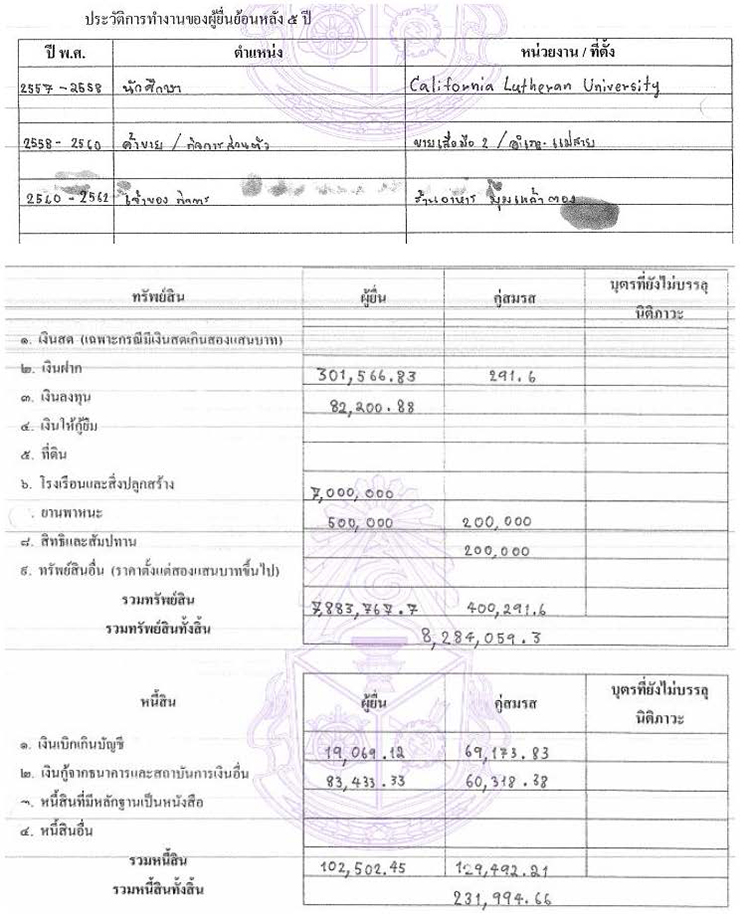 ประวัติการทำงานของผู้ยื่นย้อนหลัง ๕ ปี
ปี พ.ศ. ตำแหน่ง หน่วยงาน / ที่ตั้ง
2557 - 2558 นักศึกษา California Lutheran University
2558 - 2560 ค้าขาย / กิจการส่วนตัว ขายเสื้อมือ 2 / อำเภอ แม่สาย
2560 - 2562 เจ้าของ กิจการ ร้านอาหาร
ทรัพย์สิน ผู้ยื่น คู่สมรส บุตรที่ยังไม่บรรลุ
นิติภาวะ
๑. เงินสด (เฉพาะกรณีมีเงินสดเกินสองแสนบาท)
๒. เงินฝาก 301,566.83 291.6
๓. เงินลงทุน 82,200.88
๔. เงินให้กู้ยืม
๕. ที่ดิน
๖. โรงเรือนและสิ่งปลูกสร้าง 7,000,000
. ยานพาหนะ 500,000 200,000
๘. สิทธิและสัมปทาน 200,000
๙. ทรัพย์สินอื่น (ราคาตั้งแต่สองแสนบาทขึ้นไป)
รวมทรัพย์สิน 7,883,767.7 400,291.6
รวมทรัพย์สินทั้งสิ้น 8,284,059.3
หนี้สิน ผู้ยื่น คู่สมรส บุตรที่ยังไม่บรรลุ
นิติภาวะ
๑. เงินเบิกเกินบัญชี 19,069.12 69,173.83
๒. เงินกู้จากธนาคารและสถาบันการเงินอื่น 83,433.33 60,318.38
๓. หนี้สินที่มีหลักฐานเป็นหนังสือ
๔. หนี้สินอื่น
รวมหนี้สิน 102,502.45 129,492.21
รวมหนี้สินทั้งสิ้น 231,994.66